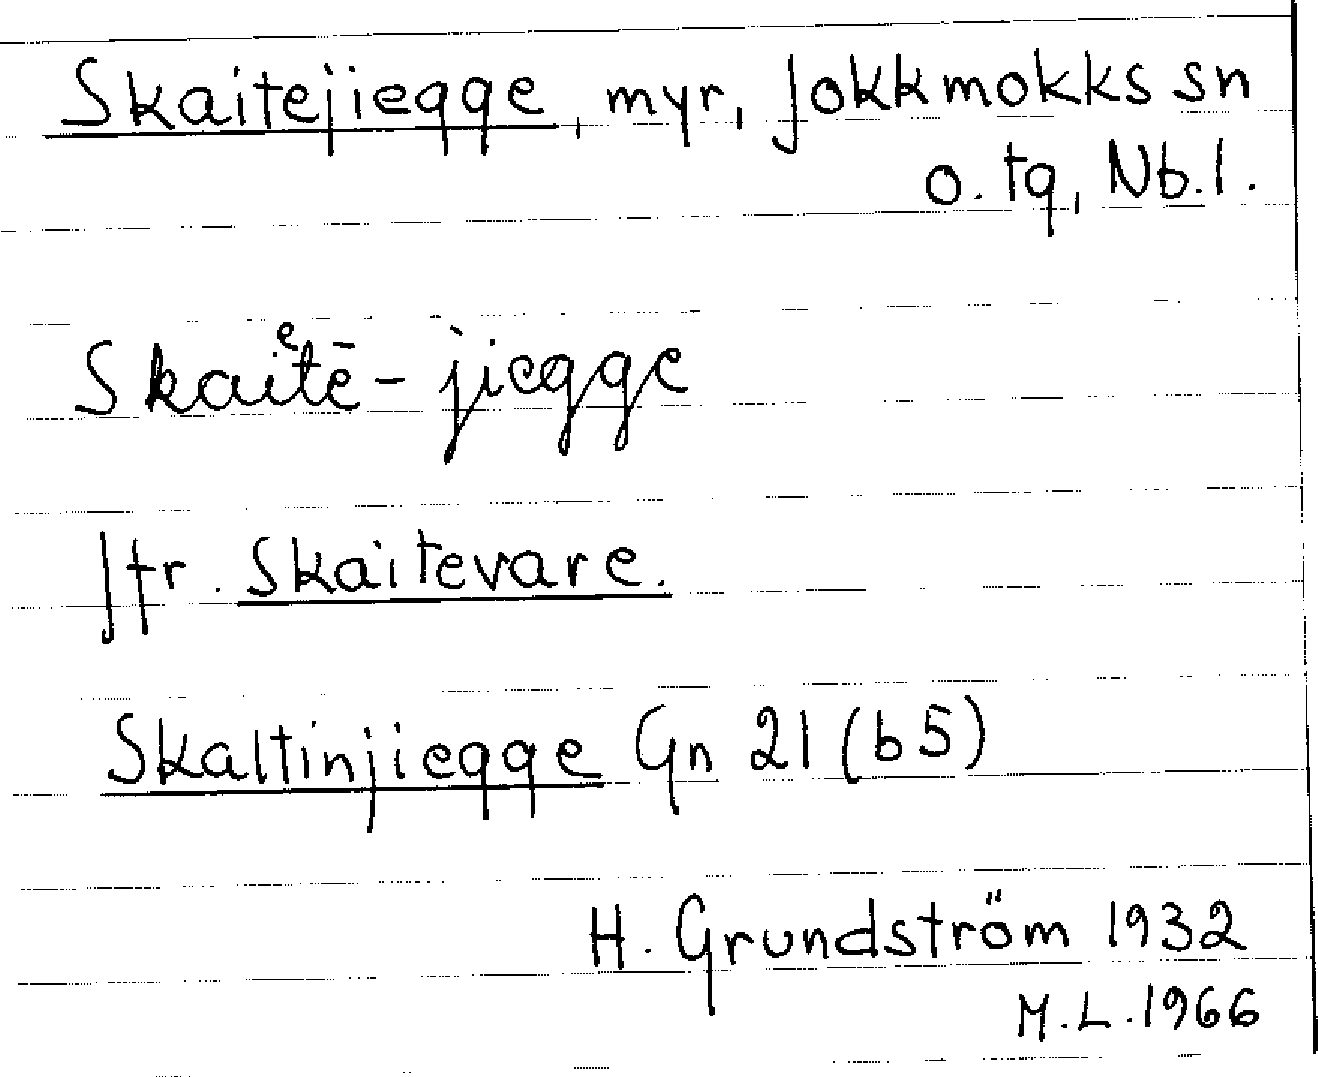 Skaitejiegge, myr, Jokkmokks sn
o. tg, Nb.l.
Skaiᵉtē-jiegge
Jfr. Skaitevare.
Skaltinjiegge Gn 21 (b5)
H. Grundström 1932
M.L. 1966